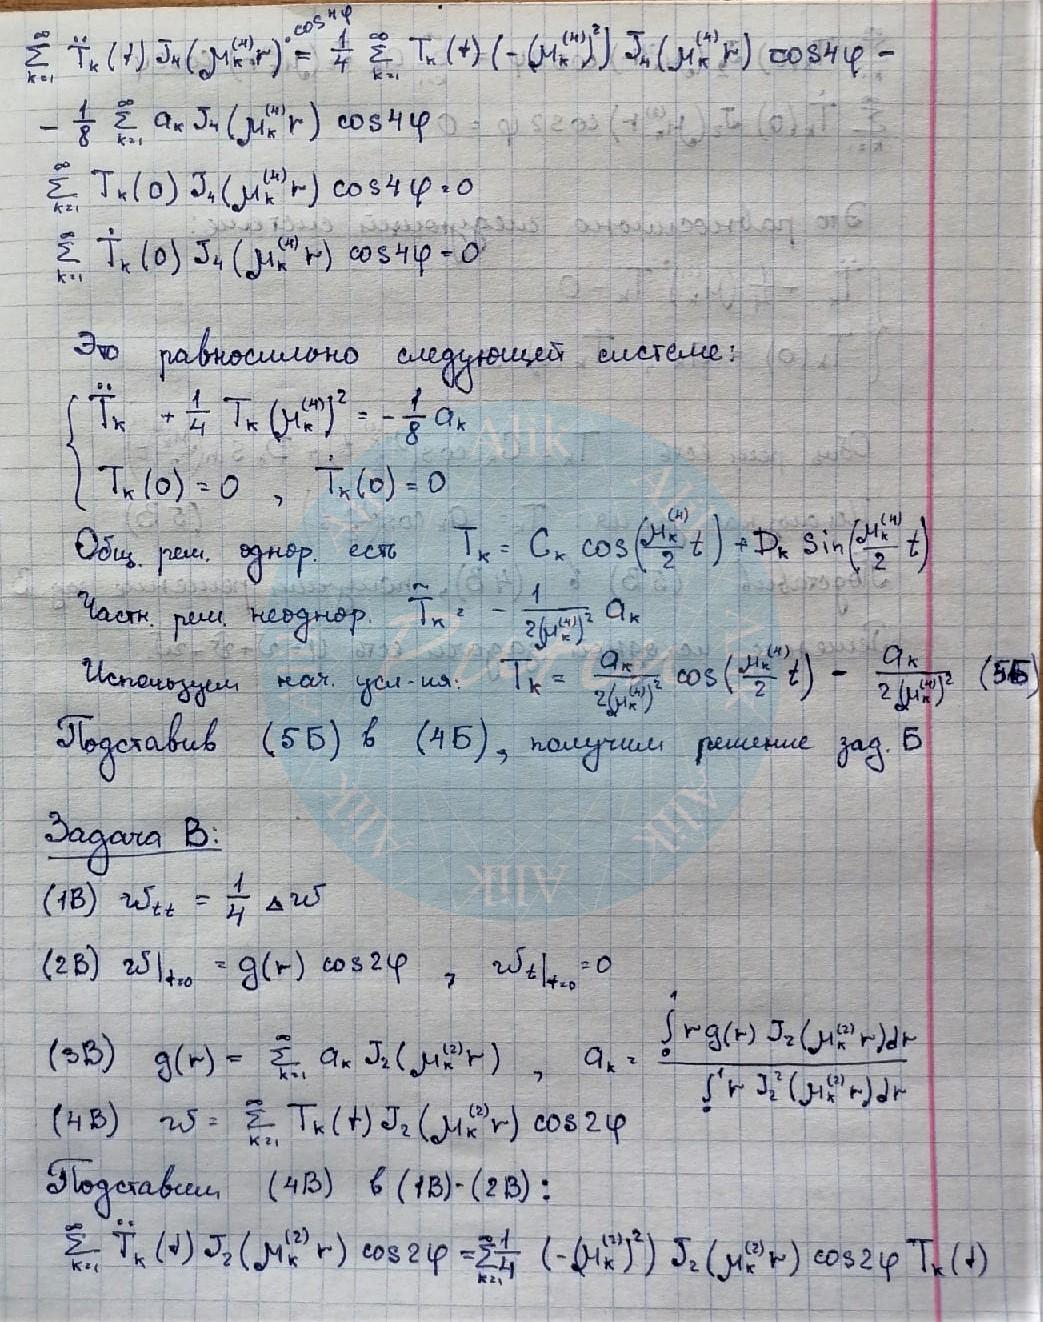 ∑_{k=1}^{∞} T̈_k(t) J_4(μ_k^{(4)} r) · cos4φ = 1/4 ∑_{k=1}^{∞} T_k(t) (-(μ_k^{(4)})^2) J_4(μ_k^{(4)} r) cos4φ -
- 1/8 ∑_{k=1}^{∞} a_k J_4(μ_k^{(4)} r) cos4φ
∑_{k=1}^{∞} T_k(0) J_4(μ_k^{(4)} r) cos4φ = 0
∑_{k=1}^{∞} Ṫ_k(0) J_4(μ_k^{(4)} r) cos4φ = 0
Это равносильно следующей системе:
{ T̈_k + 1/4 T_k (μ_k^{(4)})^2 = - 1/8 a_k
T_k(0) = 0 , Ṫ_k(0) = 0
Общ. реш. однор. есть T_k = C_k cos(μ_k^{(4)}/2 t) + D_k sin(μ_k^{(4)}/2 t)
Частн. реш. неоднор. T̃_k = - 1/(2(μ_k^{(4)})^2) a_k
Используем нач. усл-ия: T_k = a_k/(2(μ_k^{(4)})^2) cos(μ_k^{(4)}/2 t) - a_k/(2(μ_k^{(4)})^2) (5Б)
Подставив (5Б) в (4Б), получим решение зад. Б
Задача В:
(1В) w_{tt} = 1/4 Δw
(2В) w|_{t=0} = g(r) cos2φ , w_t|_{t=0} = 0
(3В) g(r) = ∑_{k=1}^{∞} a_k J_2(μ_k^{(2)} r) , a_k = ∫_0^1 r g(r) J_2(μ_k^{(2)} r)dr / ∫_0^1 r J_2^2(μ_k^{(2)} r)dr
(4В) w = ∑_{k=1}^{∞} T_k(t) J_2(μ_k^{(2)} r) cos2φ
Подставим (4В) в (1В)-(2В):
∑_{k=1}^{∞} T̈_k(t) J_2(μ_k^{(2)} r) cos2φ = ∑_{k=1}^{∞} 1/4 (-(μ_k^{(2)})^2) J_2(μ_k^{(2)} r) cos2φ T_k(t)
Alik